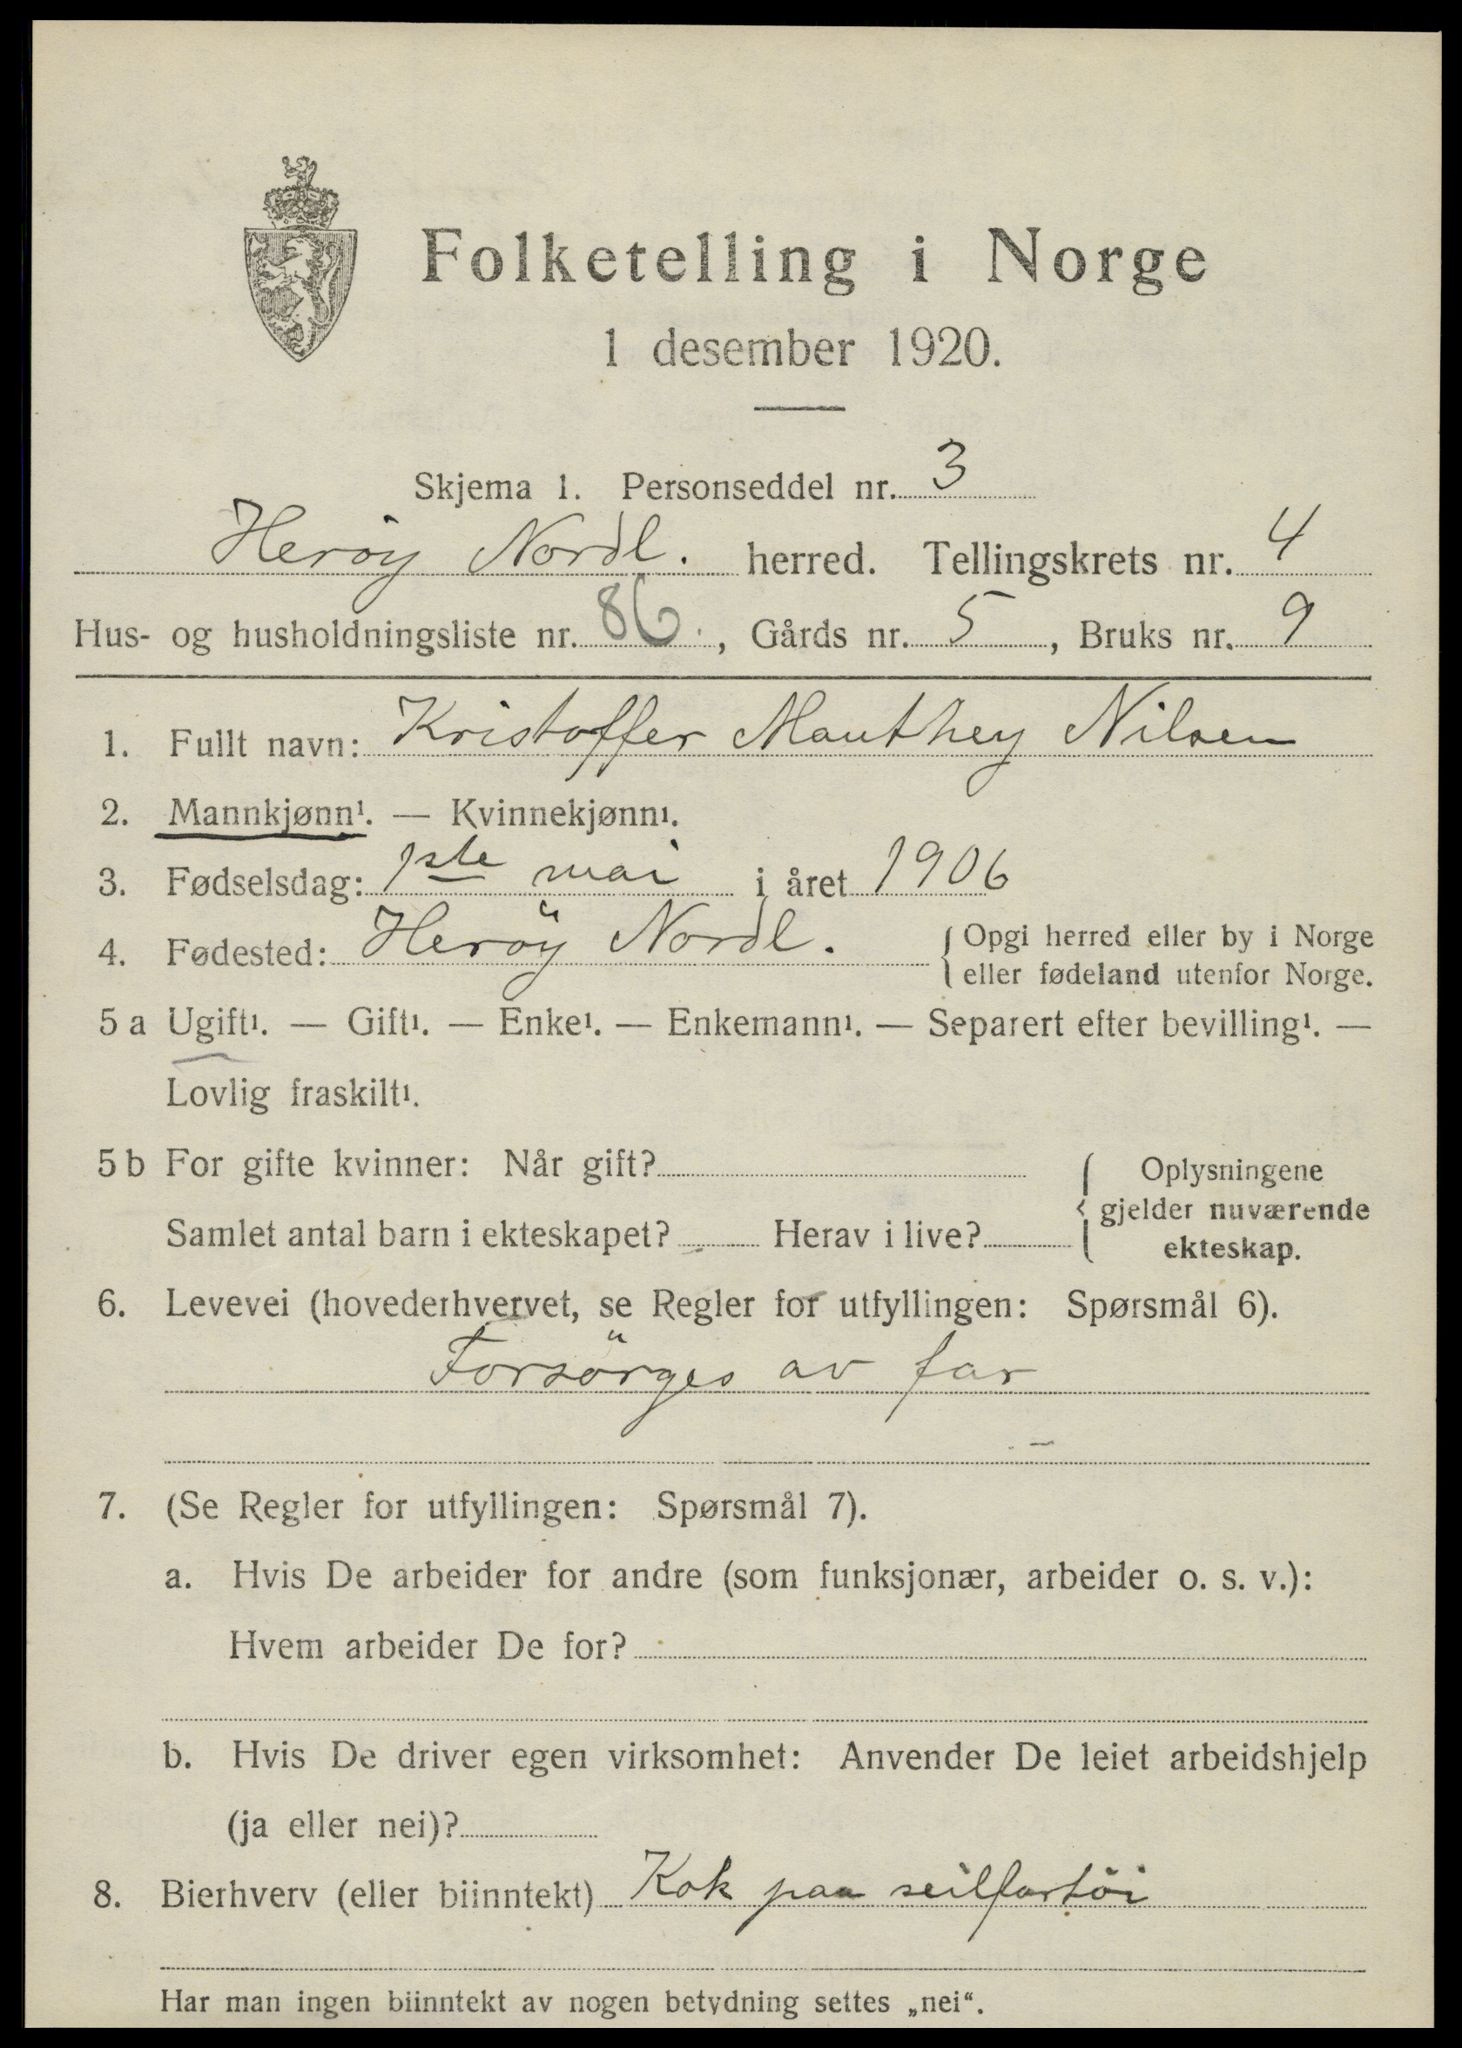 Folketelling i Norge
1 desember 1920.
Skjema 1. Personseddel nr. 3
Herøy Nordl. herred. Tellingskrets nr. 4
Hus- og husholdningsliste nr. 86, Gårds nr. 5, Bruks nr. 9
1. Fullt navn: Kristoffer Mauthey Nilsen
2. Mannkjønn¹. — Kvinnekjønn¹.
3. Fødselsdag: 1ste mai i året 1906
4. Fødested: Heröy Nordl. { Opgi herred eller by i Norge
eller fødeland utenfor Norge.
5 a Ugift¹. — Gift¹. — Enke¹. — Enkemann¹. — Separert efter bevilling¹. —
Lovlig fraskilt¹.
5 b For gifte kvinner: Når gift? { Oplysningene
gjelder nuværende
Samlet antal barn i ekteskapet? Herav i live?
ekteskap.
6. Levevei (hovederhvervet, se Regler for utfyllingen: Spørsmål 6).
Forsörges av far
7. (Se Regler for utfyllingen: Spørsmål 7).
a. Hvis De arbeider for andre (som funksjonær, arbeider o. s. v.):
Hvem arbeider De for?
b. Hvis De driver egen virksomhet: Anvender De leiet arbeidshjelp
(ja eller nei)?
8. Bierhverv (eller biinntekt) Kok paa seilfartöi
Har man ingen biinntekt av nogen betydning settes „nei“.